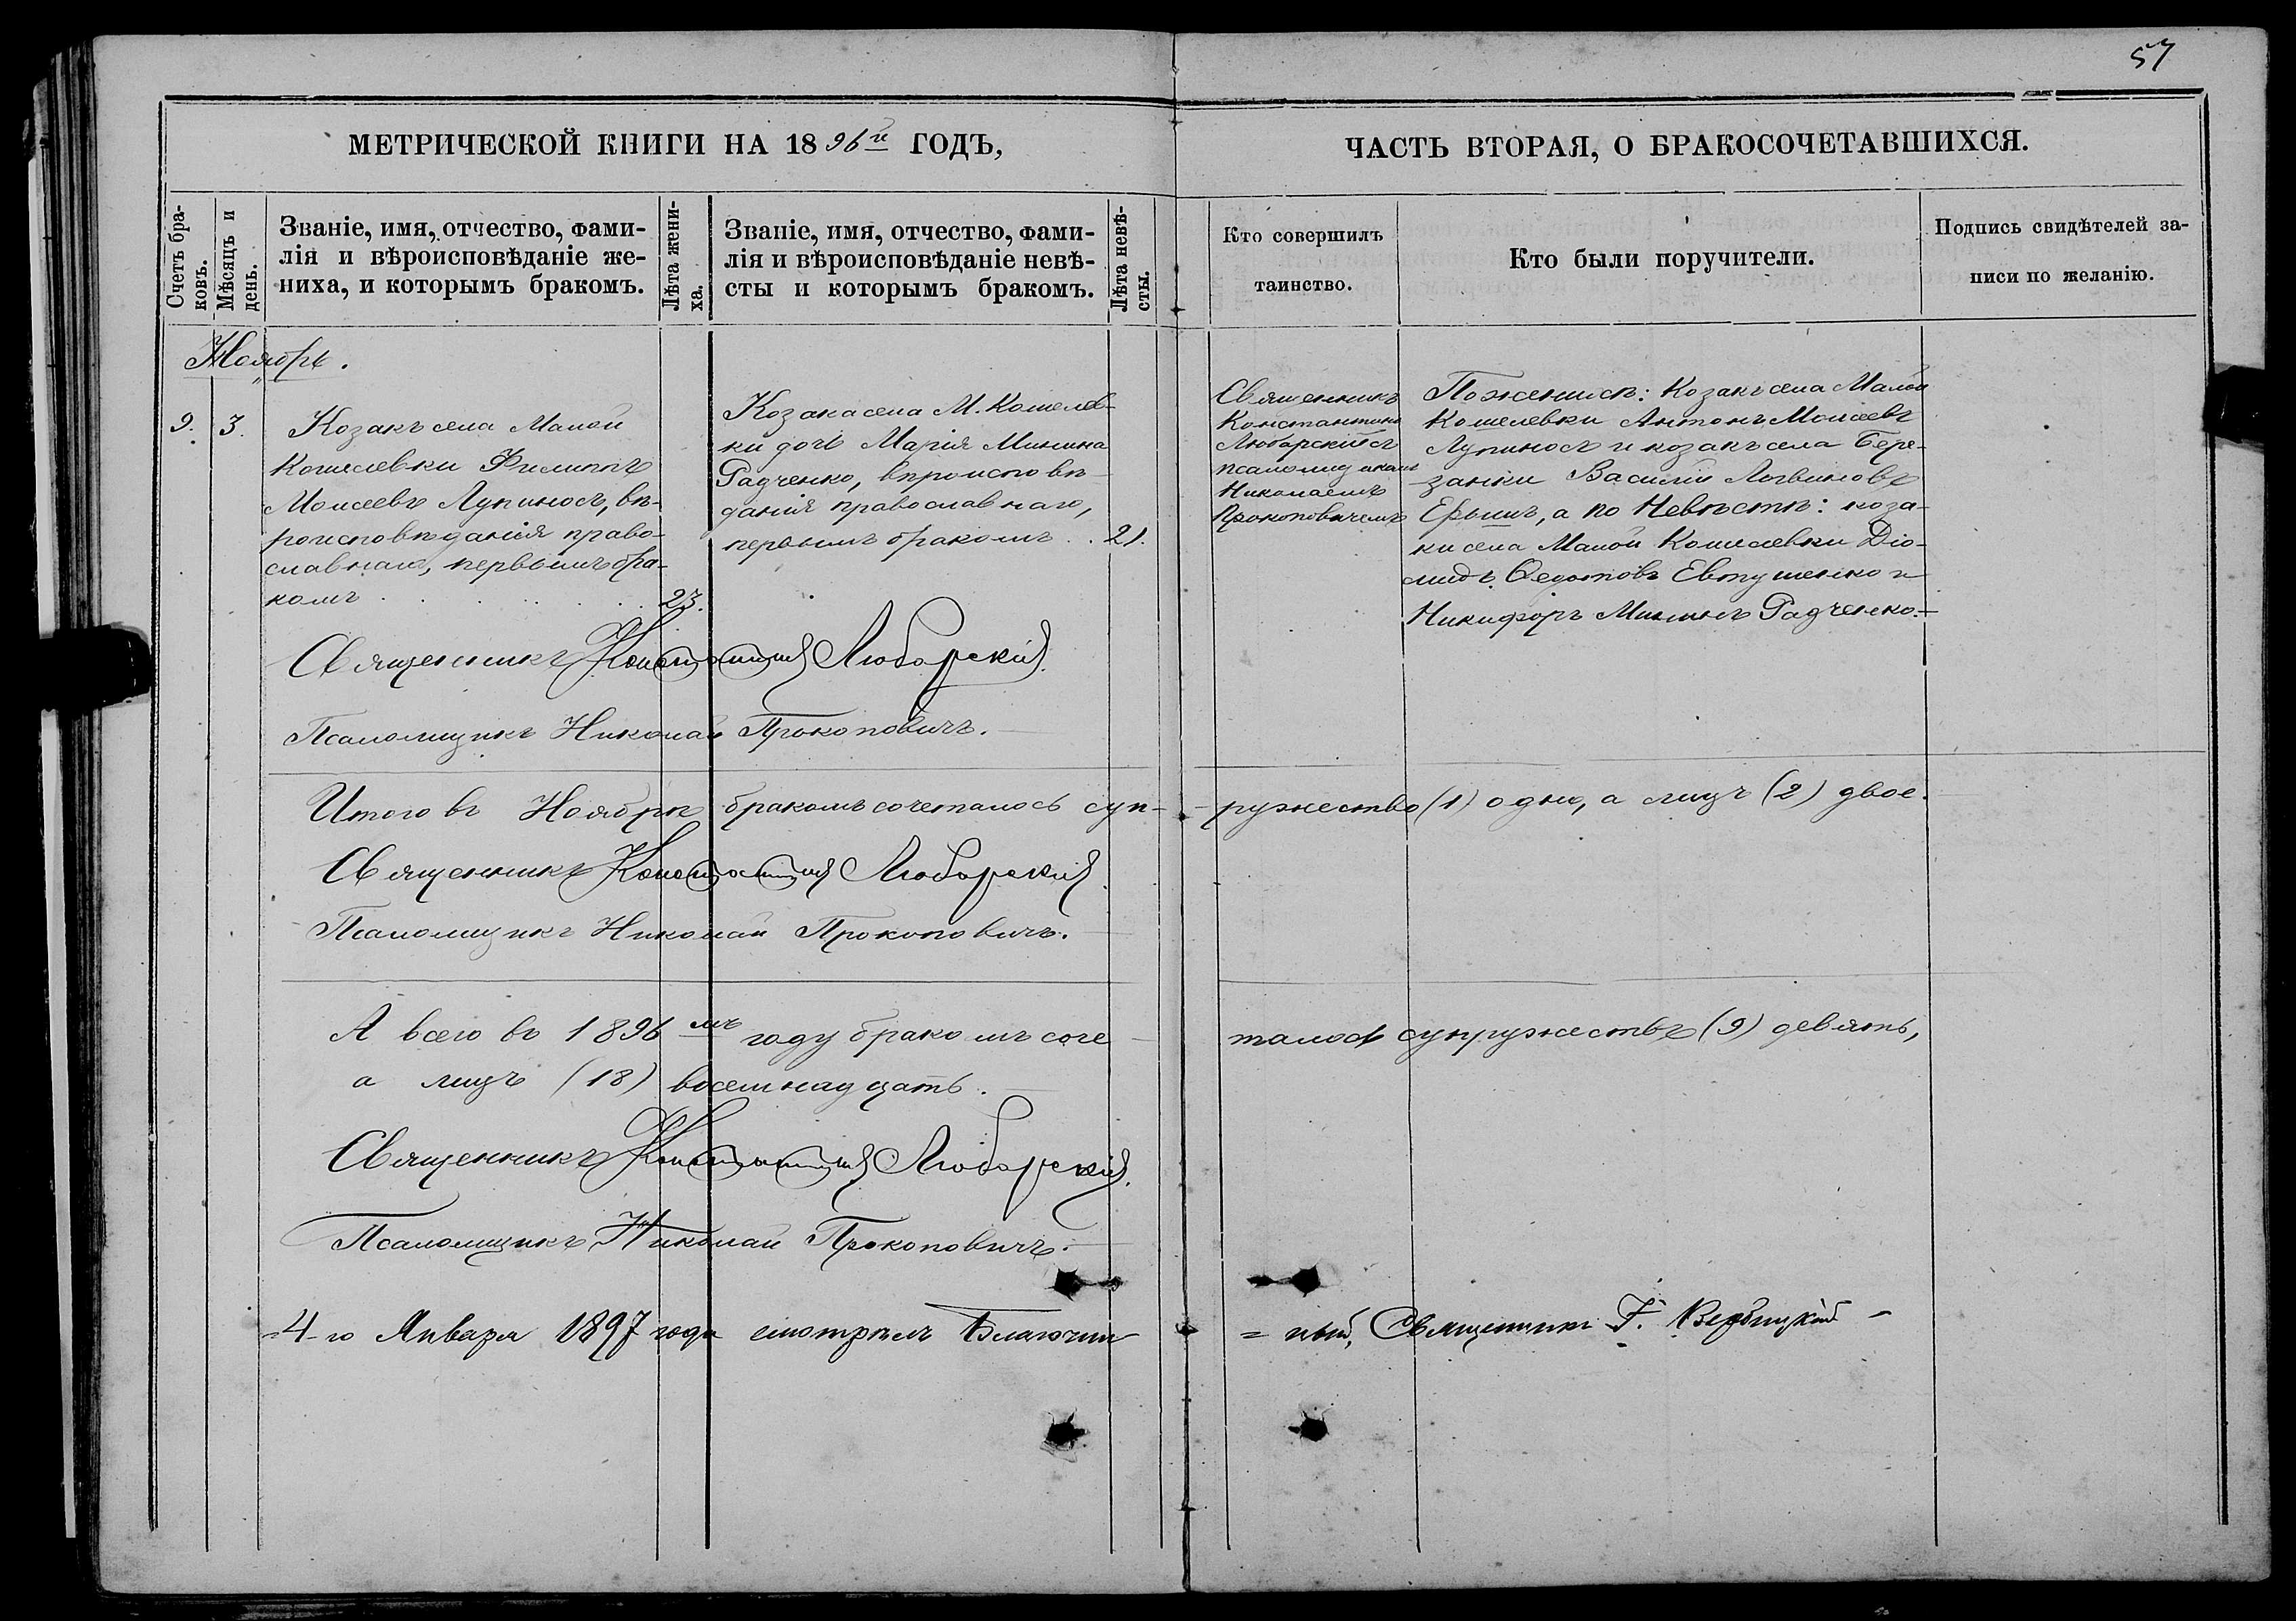 57
МЕТРИЧЕСКОЙ КНИГИ НА 1896й ГОДЪ,
ЧАСТЬ ВТОРАЯ, О БРАКОСОЧЕТАВШИХСЯ.
Счетъ бра-
ковъ.
Мѣсяцъ и
день.
Званіе, имя, отчество, фами-
лія и вѣроисповѣданіе же-
ниха, и которымъ бракомъ.
Лѣта жени-
ха.
Званіе, имя, отчество, фами-
лія и вѣроисповѣданіе невѣ-
сты и которымъ бракомъ.
Лѣта невѣ-
сты.
Кто совершилъ
таинство.
Кто были поручители.
Подпись свидѣтелей за-
писи по желанію.
Ноябрь.
9. 3.
Козакъ села Малой
Кошелевки Филиппъ
Моисеевъ Лупиносъ, вѣ-
роисповѣданія право-
славнаго, первымъ бра-
комъ . . . . . . 23.
Козака села М. Кошелев-
ки дочь Марія Минина
Радченко, вѣроисповѣ-
данія православнаго,
первымъ бракомъ . . 21.
Священникъ
Константинъ
Любарскій съ
псаломщикомъ
Николаемъ
Прокоповичемъ
По женихѣ: Козакъ села Малой
Кошелевки Антонъ Моисеевъ
Лупиносъ и козакъ села Бере-
занки Василій Логвиновъ
а по Невѣстѣ: коза-
ки села Малой Кошелевки Діо-
мидъ Ѳедотовъ Евтушенко и
Никифоръ Мининъ Радченко.
Священникъ Константинъ Любарскій.
Псаломщикъ Николай Прокоповичъ.
Итого въ Ноябрѣ бракомъ сочеталось суп- -ружество (1) одно, а лицъ (2) двое.
Священникъ Константинъ Любарскій.
Псаломщикъ Николай Прокоповичъ.
А всего въ 1896мъ году бракомъ соче- талось супружествъ (9) девять,
а лицъ (18) восемнадцать.
Священникъ Константинъ Любарскій.
Псаломщикъ Николай Прокоповичъ.
4-го Января 1897 года смотрѣлъ Благочин =ный, Священникъ Вербицкій